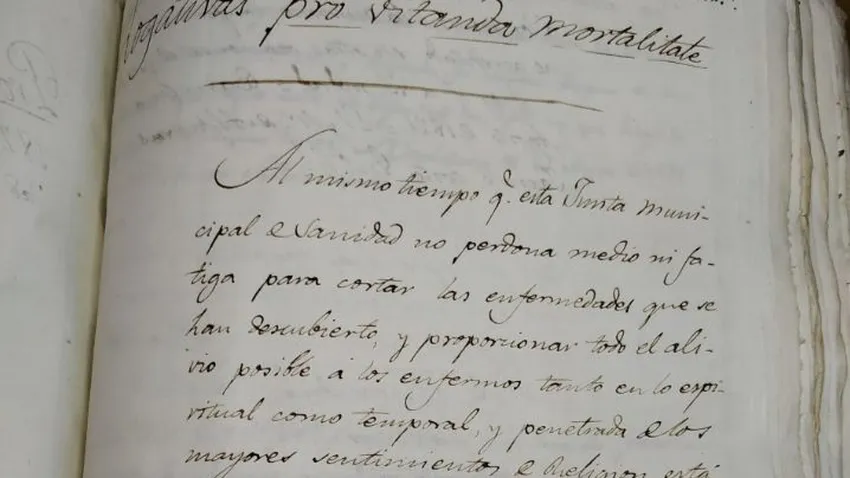 Rogativas pro vitanda mortalitate
Al mismo tiempo q.ͤ esta Junta muni-
cipal de Sanidad no perdona medio ni fa-
tiga para cortar las enfermedades que se
han descubierto, y proporcionar todo el ali-
vio posible á los enfermos tanto en lo espi-
ritual como temporal, y penetrada de los
mayores sentimientos de Religion está